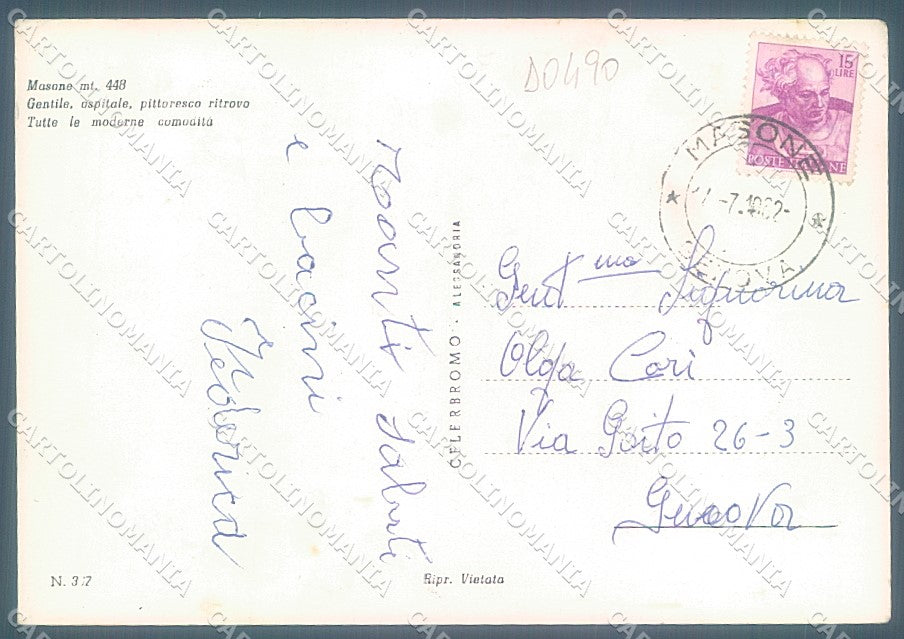 D0490
Masone mt. 448
Gentile, ospitale, pittoresco ritrovo
Tutte le moderne comodità
15
LIRE
POSTE ITALIANE
MASONE
-7.1962-
GENOVA
saluti
e bacini
Federica
CELERBROMO - ALESSANDRIA
Gent.ma Signorina
Olga Cori
Via Goito 26-3
Genova
N. 317
Ripr. Vietata
CARTOLINOMANIA